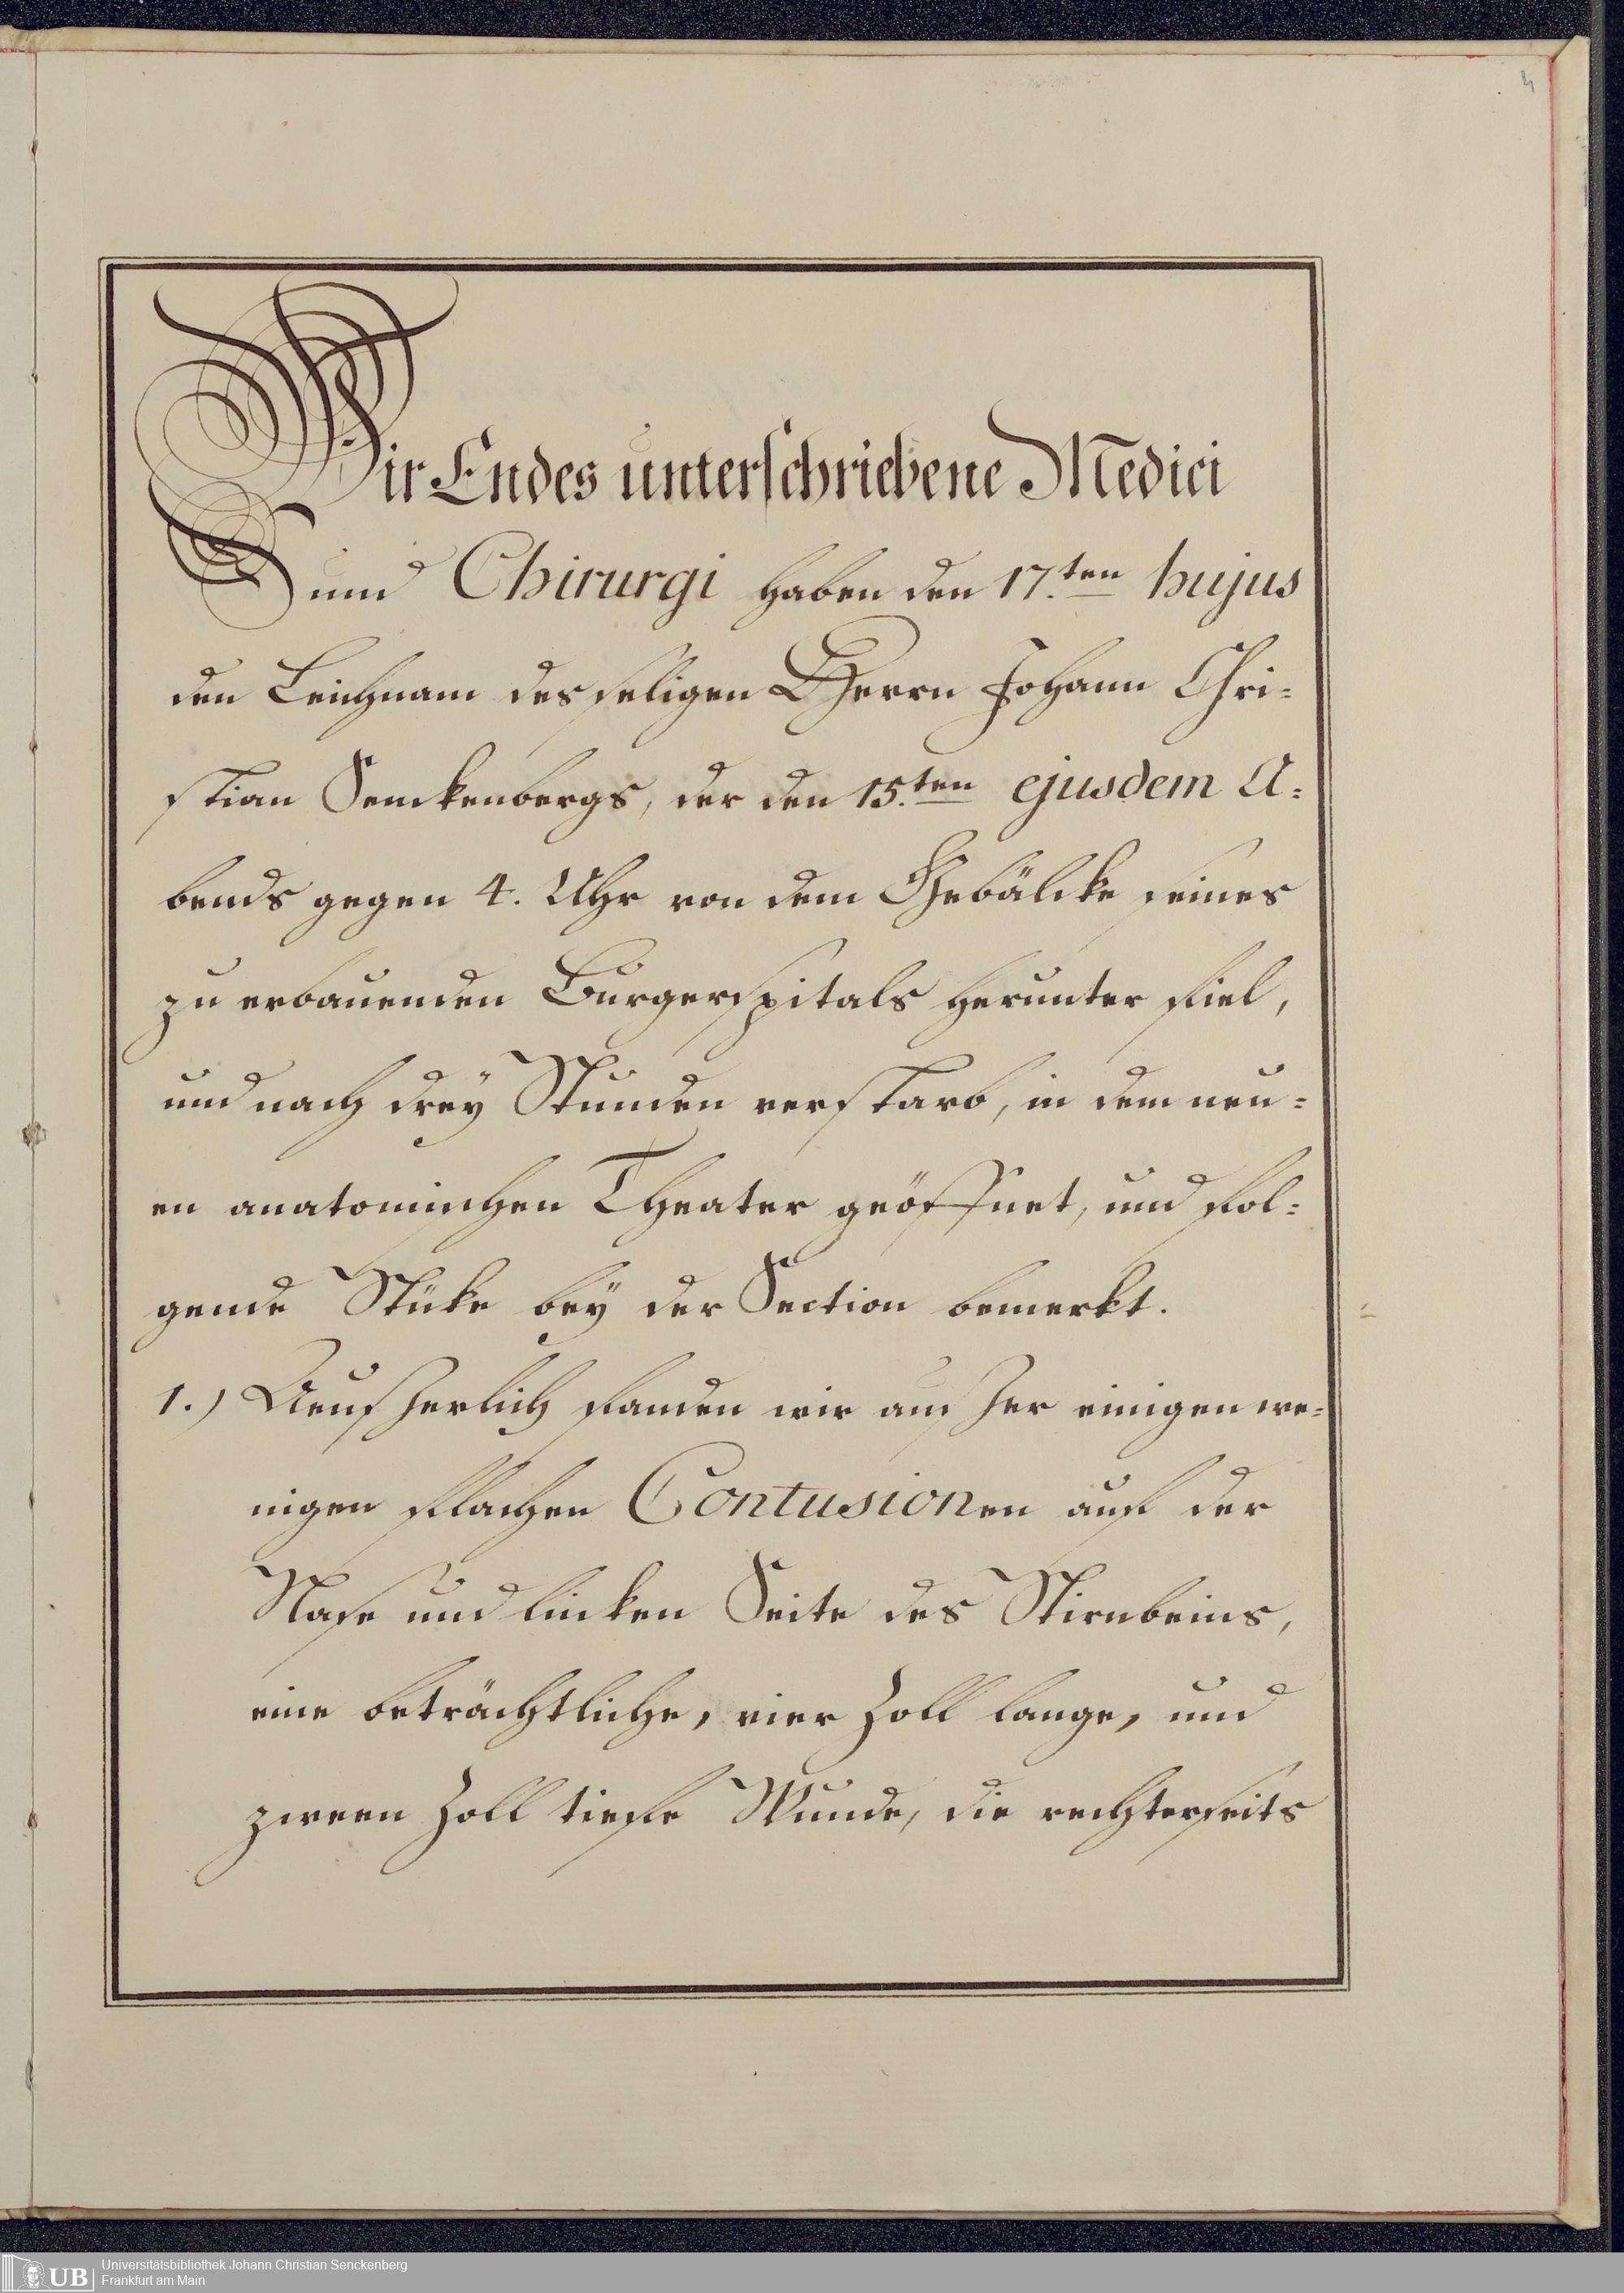 4
Wir Endes unterschriebene Medici
und Chirurgi haben den 17.ten hujus
den Leichnam des seligen Herrn Johann Chri=
stian Senckenbergs, der den 15.ten ejusdem A=
bends gegen 4. Uhr von dem Gebälcke seines
zu erbauenden Burgerspitals herunter fiel,
und nach dreÿ Stunden verstarb, in dem neu=
en anatomischen Theater geöffnet, und fol=
gende Stüke beÿ der Section bemerkt.
1.) Aeusserlich fanden wir ausser einigen we=
nigen flachen Contusionen auf der
Nase und lincken Seite des Stirnbeins,
eine beträchtliche, vier Zoll lange, und
zween Zoll tiefe Wunde, die rechterseits
UB
Universitätsbibliothek Johann Christian Senckenberg
Frankfurt am Main